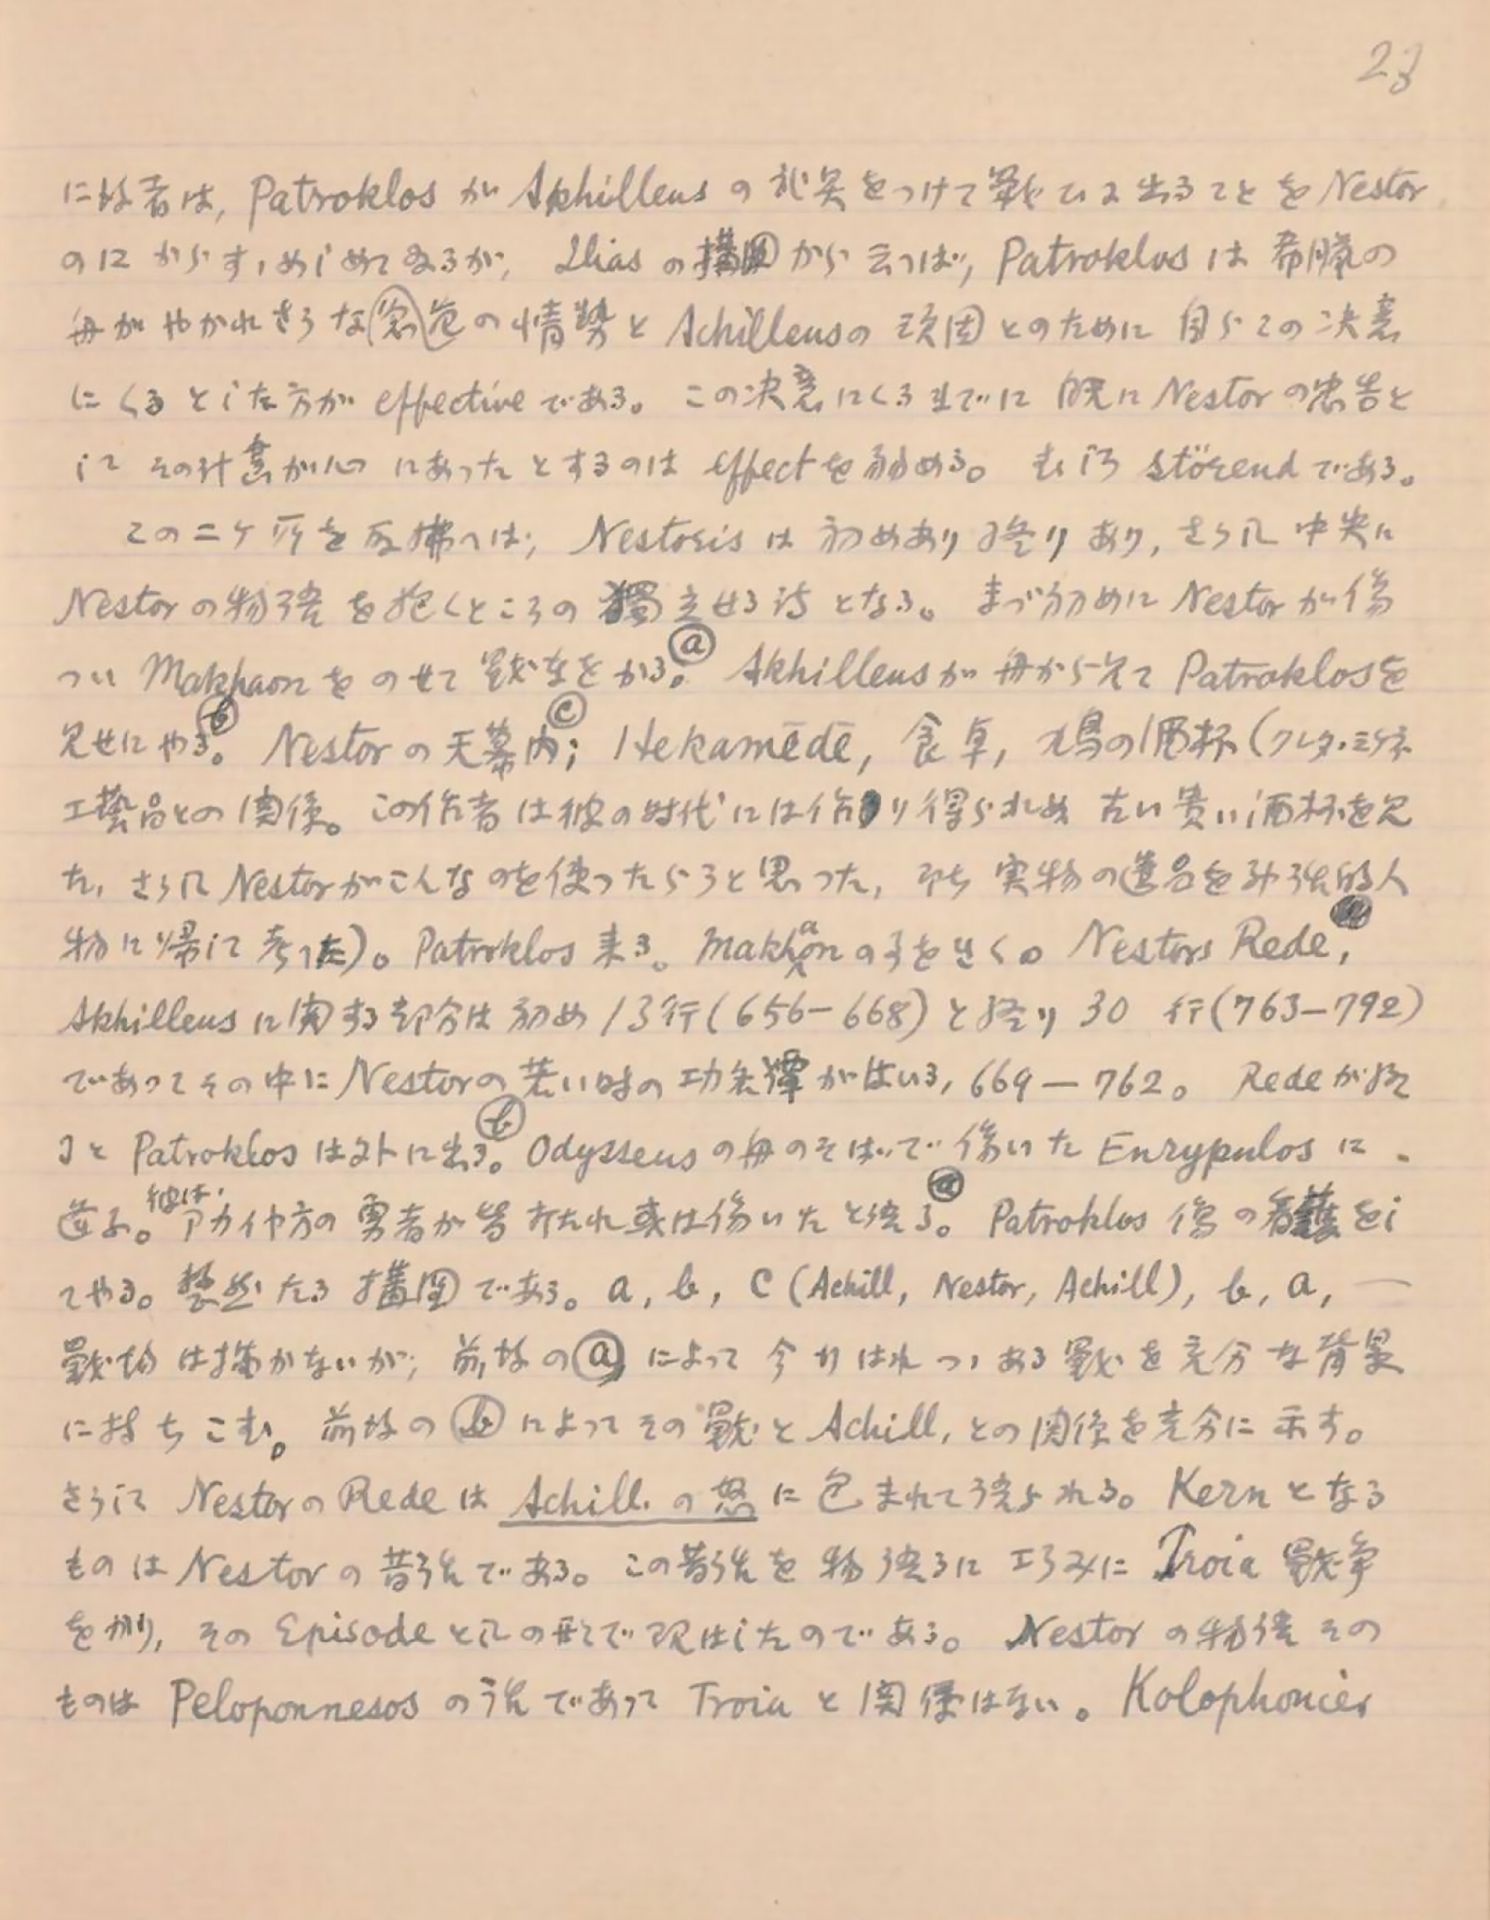 23
に故者は, Patroklos が Akhilleus の武具をつけて戰ひに出ることを Nestor
のにからすゝめしめてゐるが, Ilias の構圖から云つば, Patroklos は希臘の
舟がやかれさうな窮危の情勢と Achilleusの頑固とのために自らこの決意
にくるとした方が effective である。この決意にくるまでに既に Nestor の忠告と
して その計畫が心にあったとするのは effect を弱める。むしろ störend である。
このニケ所を取拂へば, Nestoris は初めあり終りあり, さうして中央に
Nestor の物語を抱くところの獨立せる詩となる。まづ初めに Nestor が傷
つい Makhaon をのせて戰車をかる。ⓐ Akhilleus が舟から見て Patroklos を
見せにやる。ⓑ Nestor の天幕内; ⓒ Hekamēdē, 食卓, 鳩の酒杯 (クレタ・ミケネ
工藝品との関係。この作者は彼の時代には作り得られぬ古い貴い酒杯を見
た, さうして Nestor がこんなのを使ったらうと思つた, 即ち実物の遺品を神話的人
物に帰して考へた)。Patroklos 来る。Makhaon の事をきく。Nestors Rede,
Akhilleus に関する部分は初め 13行 (656–668) と終り 30 行 (763–792)
であってその中に Nestor の若い時の功名譚がはいる, 669 — 762。Rede が終
ると Patroklos は外に出る。ⓑ Odysseus の舟のそばで傷いた Eurypulos に
逢ふ。彼は, アカイヤ方の勇者が皆打たれ或は傷いたと語る。ⓐ Patroklos 傷の看護をし
てやる。整然たる構圖である。a, b, c (Achill, Nestor, Achill), b, a, —
戰場は描かないが, 前後の ⓐ によって今行はれつゝある戰を充分な背景
に持ちこむ。前後の ⓑ によってその戰と Achill, との関係を充分に示す。
さうして Nestor の Rede は Achill. の怒に包まれて語られる。Kern となる
ものは Nestor の昔話である。この昔話を物語るに巧みに Troia 戰争
をかり, その Episode としての形で現はしたのである。Nestor の物語その
ものは Peloponnesos の話であって Troia と関係はない。Kolophonier